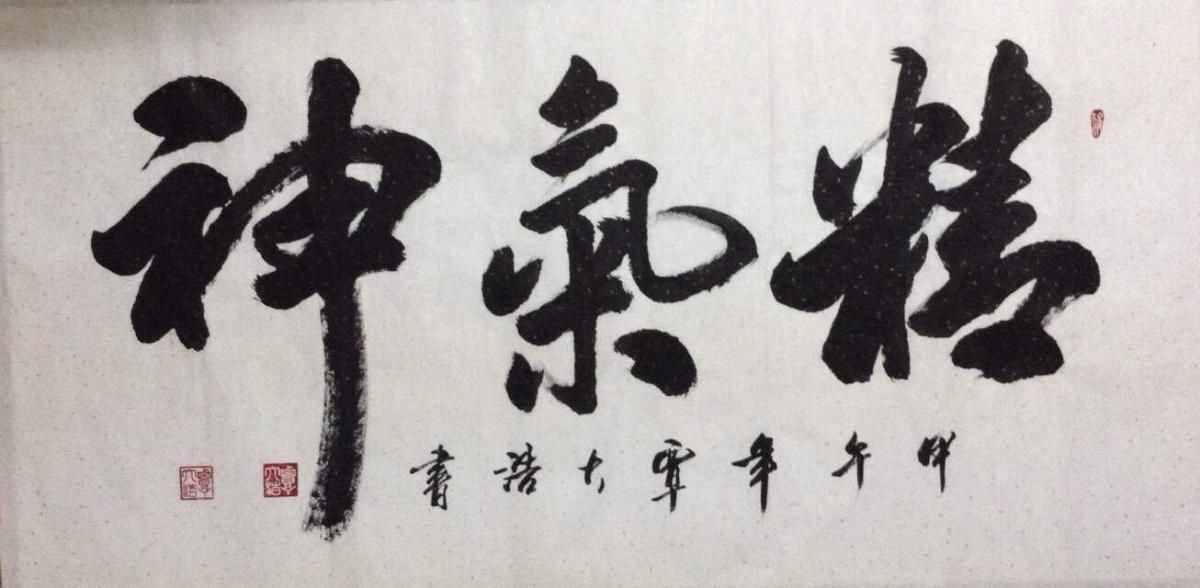 精氣神
甲午年覃大浩書